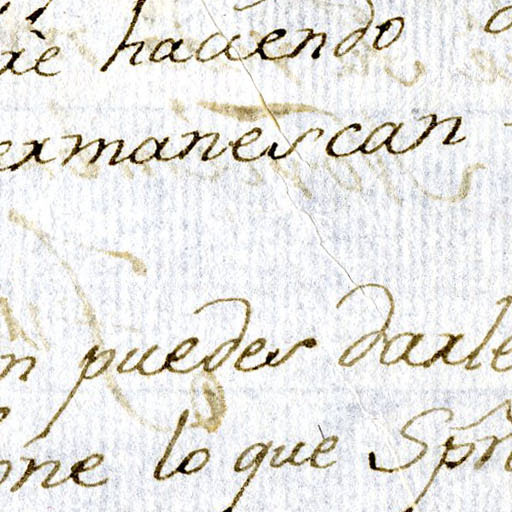 haciendo
ermanescan
puedes darle
one lo que Spre